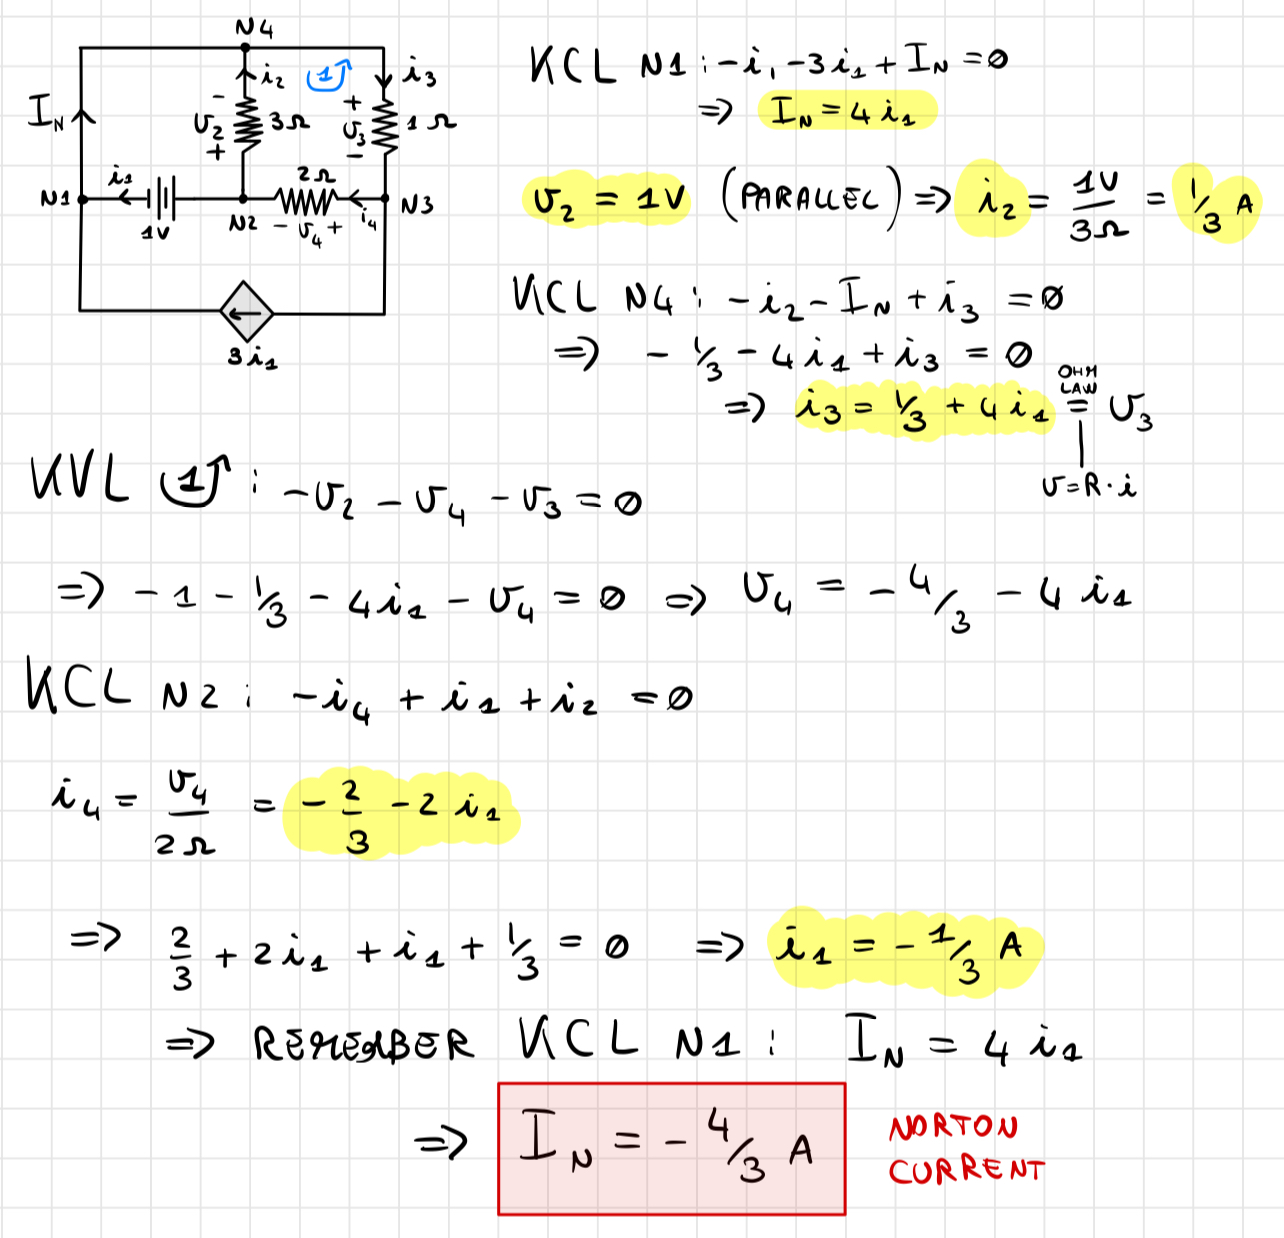 N4
i2 (1) i3
IN
- + 
v2 3Ω v3 1Ω
+ -
i1 2Ω
N1 N2 i4 N3
1V - v4 +
3i1
KCL N1: -i1 -3i1 + IN = 0
=> IN = 4i1
v2 = 1V (PARALLEL) => i2 = 1V/3Ω = 1/3 A
KCL N4: -i2 - IN + i3 = 0
=> - 1/3 - 4i1 + i3 = 0
=> i3 = 1/3 + 4i1 = v3
OHM
LAW
v=R·i
KVL 1: -v2 - v4 - v3 = 0
=> -1 - 1/3 - 4i1 - v4 = 0 => v4 = -4/3 - 4i1
KCL N2: -i4 + i1 + i2 = 0
i4 = v4/2Ω = -2/3 - 2i1
=> 2/3 + 2i1 + i1 + 1/3 = 0 => i1 = -1/3 A
=> REMEMBER KCL N1: IN = 4i1
=> IN = -4/3 A NORTON
CURRENT